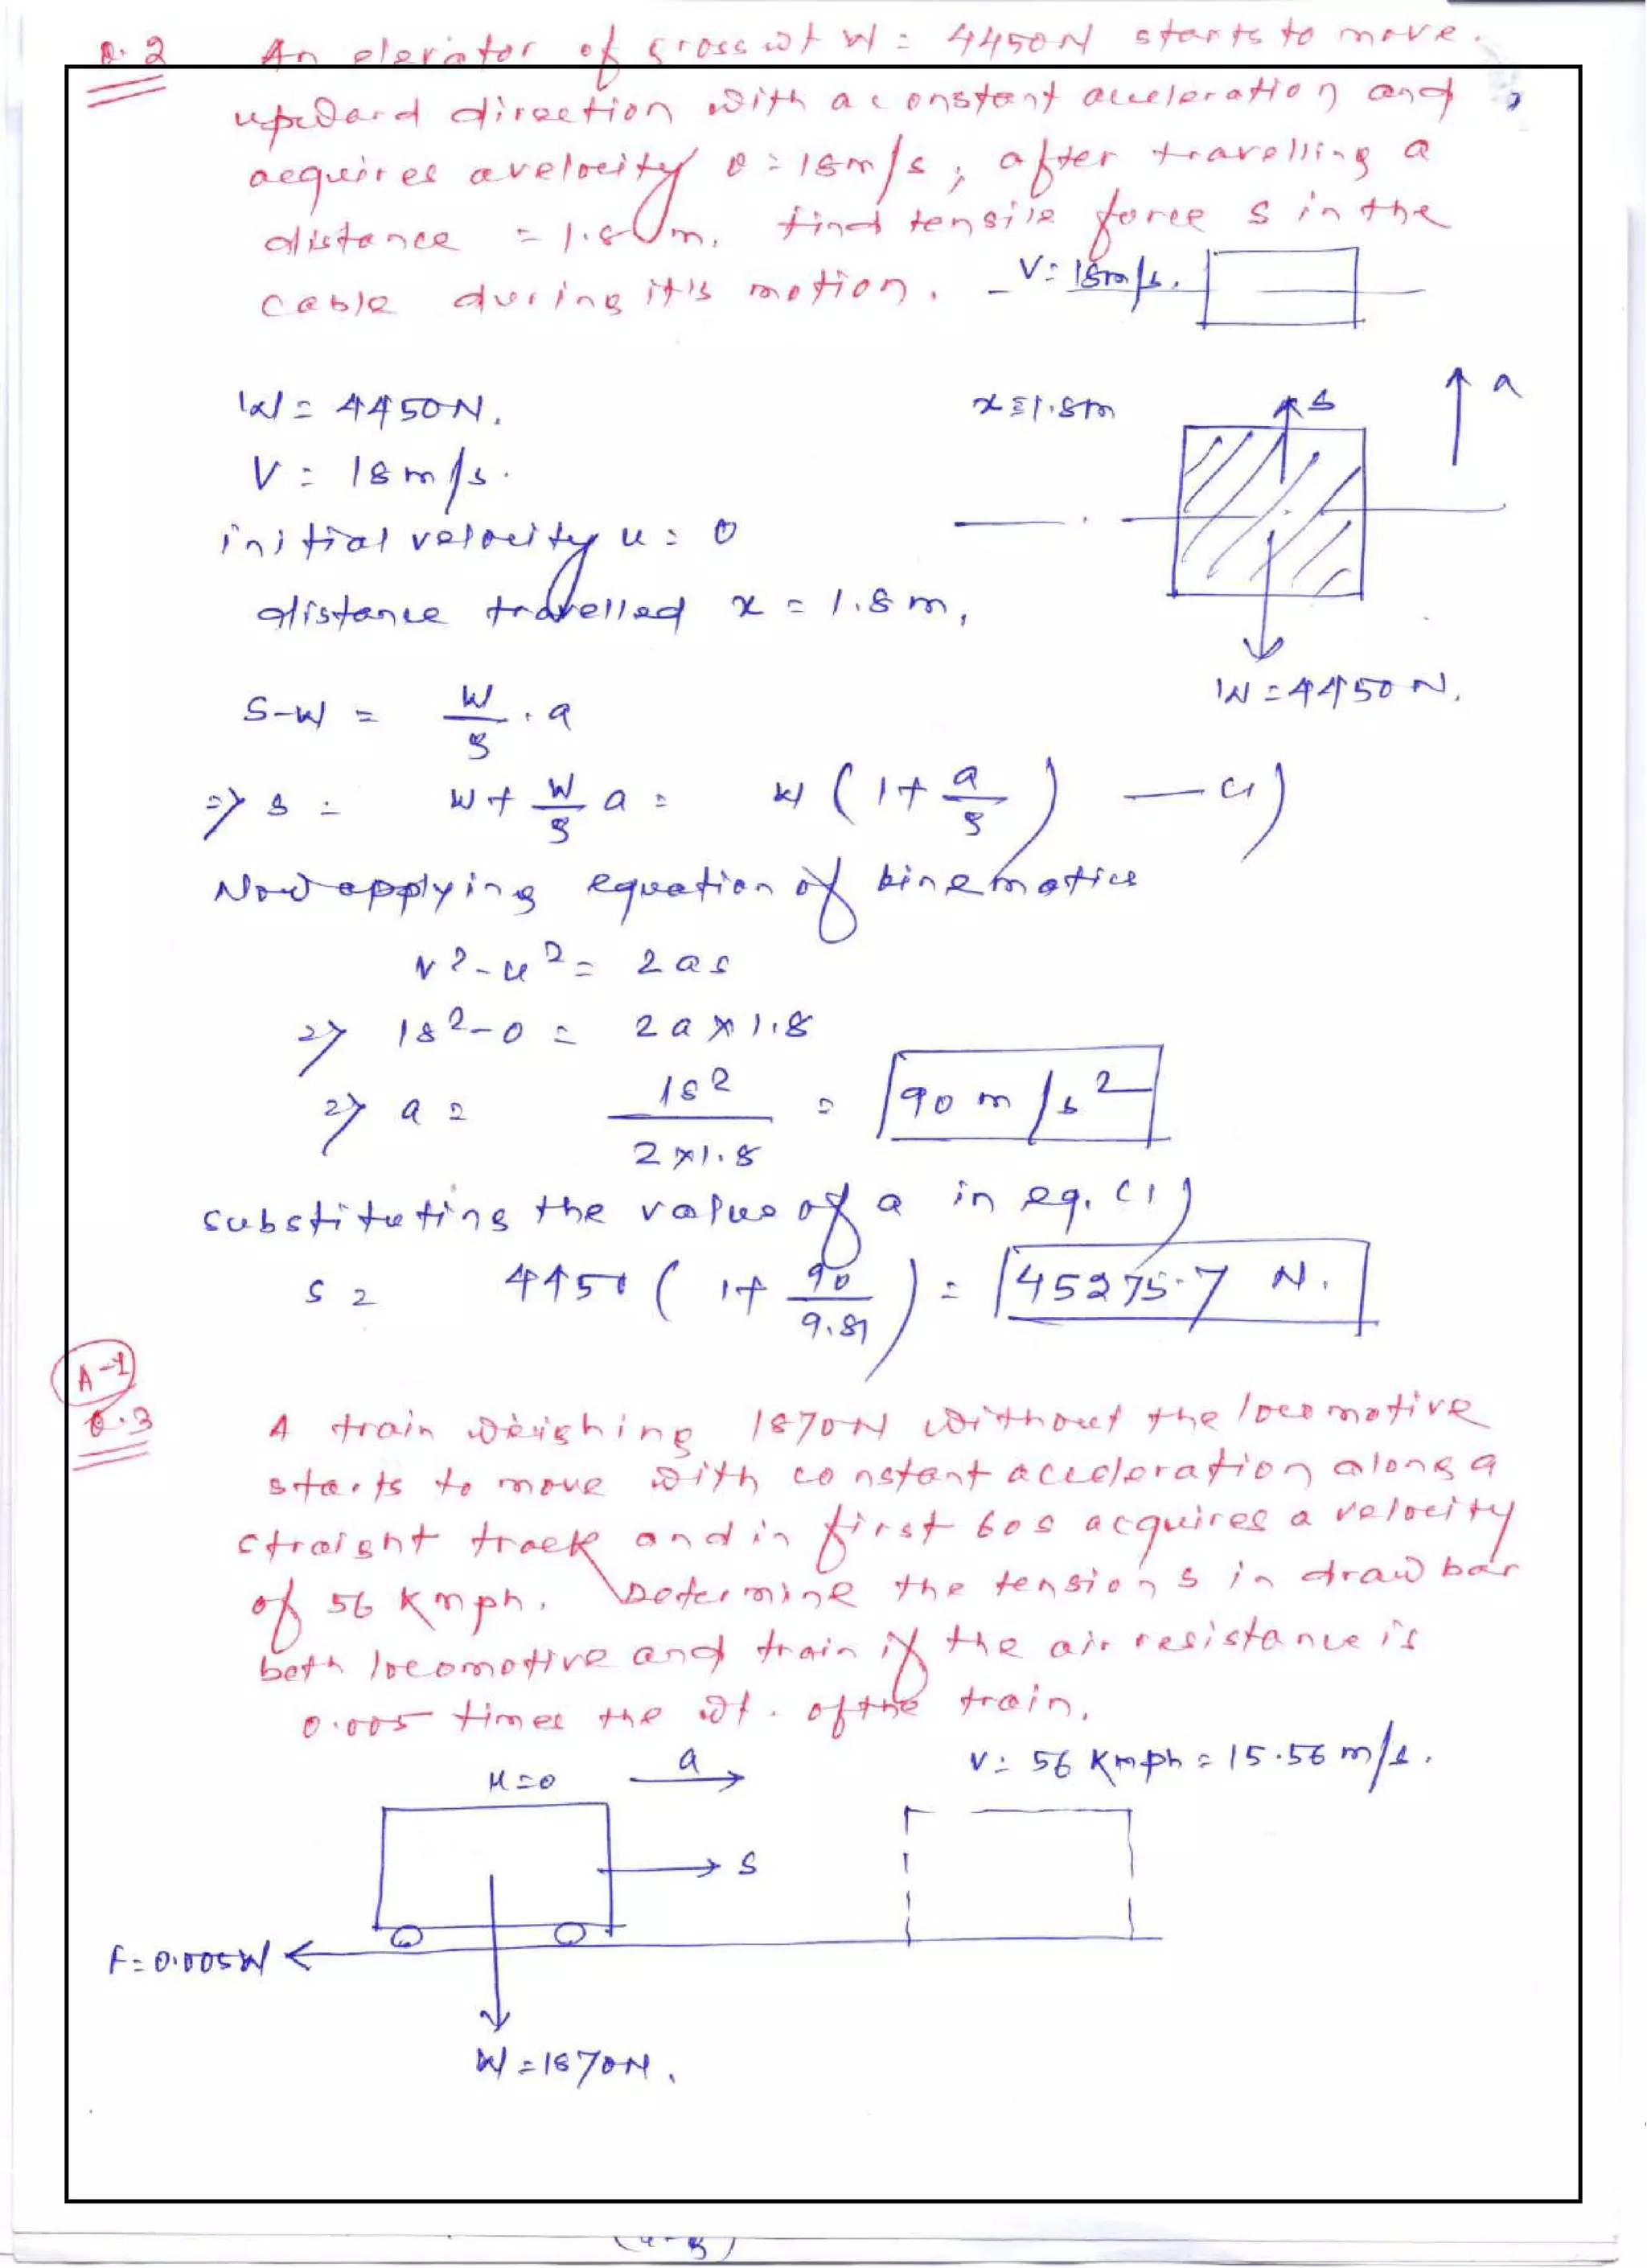 Q.2 An elevator of gross wt W = 4450N starts to move.
upward direction with a constant acceleration and
acquires a velocity v = 18m/s, after travelling a
distance = 1.8m. find tensile force S in the
cable during it's motion.
V = 18m/s.
W = 4450N.
x = 1.8m
S
a
V = 18m/s.
initial velocity u = 0
distance travelled x = 1.8m,
W = 4450N.
S-W = W/g . a
=> S = W + W/g a = W (1 + a/g) — (1)
Now applying equation of kinematics
v²-u² = 2as
=> 18²-0 = 2a×1.8
=> a = 18²/2×1.8 = 90m/s²
substituting the value of a in eq. (1)
S = 4450 (1 + 90/9.81) = 45275.7 N.
A-1
Q.3 A train weighing 1870N without the locomotive
starts to move with constant acceleration along a
straight track and in first 60s acquires a velocity
of 56 Kmph. Determine the tension S in draw bar
both locomotive and train if the air resistance is
0.005 times the wt. of the train.
u=0
a
V = 56 Kmph = 15.56 m/s.
S
F = 0.005W
W = 1870N.